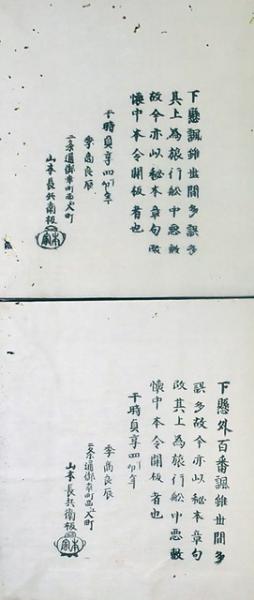 下懸諷雖世間多誤多
其上為旅行舩中悪敷
故今亦以秘本章句改
懐中本令開板者也
于時貞享四卯年
季商良辰
二条通御幸町西入町
山本長兵衛板
下懸外百番諷雖世間多
誤多故今亦以秘本章句
改其上為旅行舩中悪敷
懐中本令開板者也
于時貞享四卯年
季商良辰
二条通御幸町西入町
山本長兵衛板